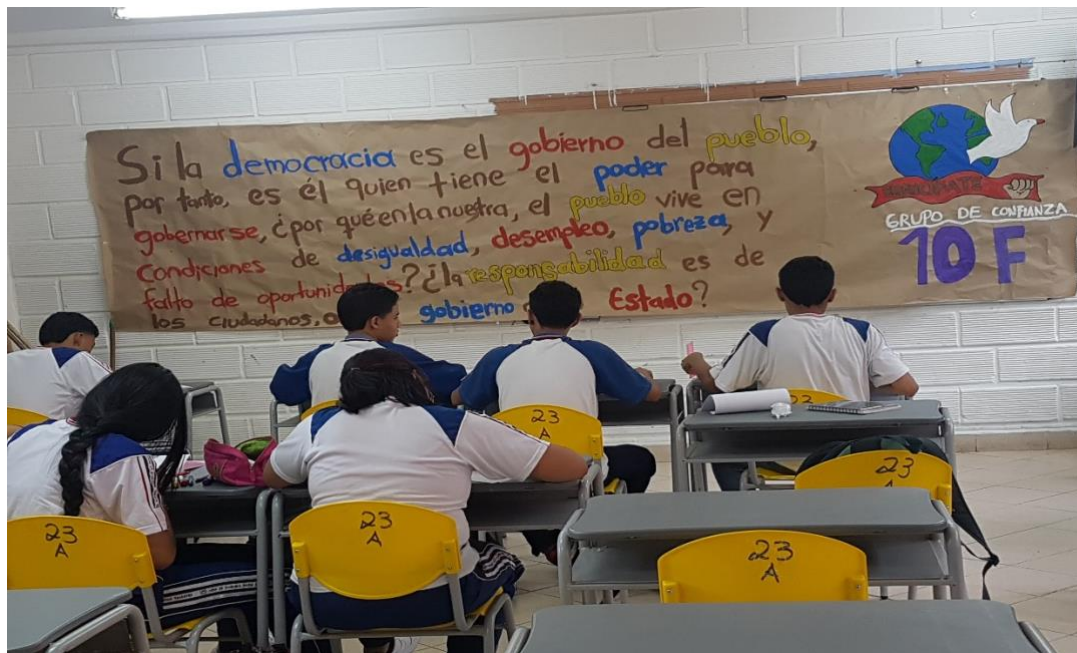 Si la democracia es el gobierno del pueblo,
por tanto, es él quien tiene el poder para
gobernarse, ¿por qué en la nuestra, el pueblo vive en
condiciones de desigualdad, desempleo, pobreza, y
falto de oportunidades? ¿la responsabilidad es de
los ciudadanos, o gobierno Estado?
GRUPO DE CONFIANZA
10 F
23
A
23
A
23
A
23
A
23
23